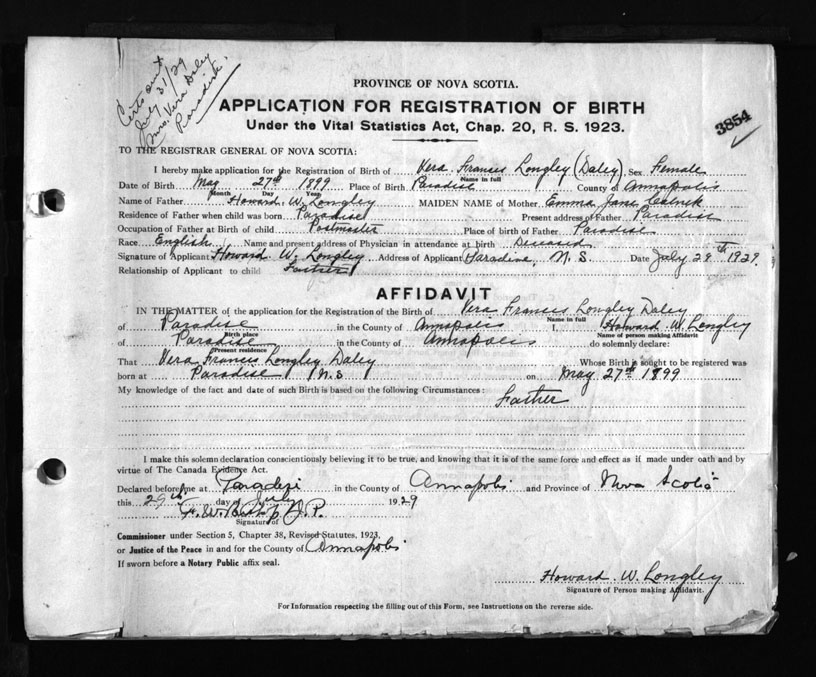 Certs out
July 31/29
Mrs. Vera Daley
Paradise.
PROVINCE OF NOVA SCOTIA.
APPLICATION FOR REGISTRATION OF BIRTH
Under the Vital Statistics Act, Chap. 20, R. S. 1923.
3854
TO THE REGISTRAR GENERAL OF NOVA SCOTIA:
I hereby make application for the Registration of Birth of Vera Frances Longley (Daley) Sex Female
Name in full
Date of Birth May 27th 1899 Place of Birth Paradise County of Annapolis
Month Day Year
Name of Father Howard W. Longley MAIDEN NAME of Mother Emma Jane
Residence of Father when child was born Paradise Present address of Father Paradise
Occupation of Father at Birth of child Postmaster Place of birth of Father Paradise
Race English Name and present address of Physician in attendance at birth Deceased
Signature of Applicant Howard W. Longley Address of Applicant Paradise, N. S. Date July 29th 1929.
Relationship of Applicant to child Father
AFFIDAVIT
IN THE MATTER of the application for the Registration of the Birth of Vera Frances Longley Daley
Name in full
of Paradise in the County of Annapolis I, Howard W. Longley
Birth place Name of person making Affidavit
of Paradise in the County of Annapolis do solemnly declare:
Present residence
That Vera Frances Longley Daley Whose Birth is sought to be registered was
born at Paradise N.S on May 27th 1899
My knowledge of the fact and date of such Birth is based on the following Circumstances: Father
I make this solemn declaration conscientiously believing it to be true, and knowing that it is of the same force and effect as if made under oath and by
virtue of The Canada Evidence Act.
Declared before me at Paradise in the County of Annapolis and Province of Nova Scotia
this 29th day of July 1929
J.P.
Signature of
Commissioner under Section 5, Chapter 38, Revised Statutes, 1923,
or Justice of the Peace in and for the County of Annapolis
If sworn before a Notary Public affix seal.
Howard. W. Longley
Signature of Person making Affidavit.
For Information respecting the filling out of this Form, see Instructions on the reverse side.